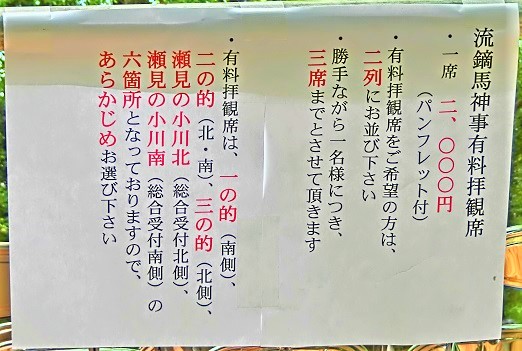 流鏑馬神事有料拝観席
・一席　二、〇〇〇円
（パンフレット付）
・有料拝観席をご希望の方は、
二列にお並び下さい
・勝手ながら一名様につき、
三席までとさせて頂きます
・有料拝観席は、一の的（南側）、
二の的（北・南）、三の的（北側）、
瀬見の小川北（総合受付北側）、
瀬見の小川南（総合受付南側）の
六箇所となっておりますので、
あらかじめお選び下さい